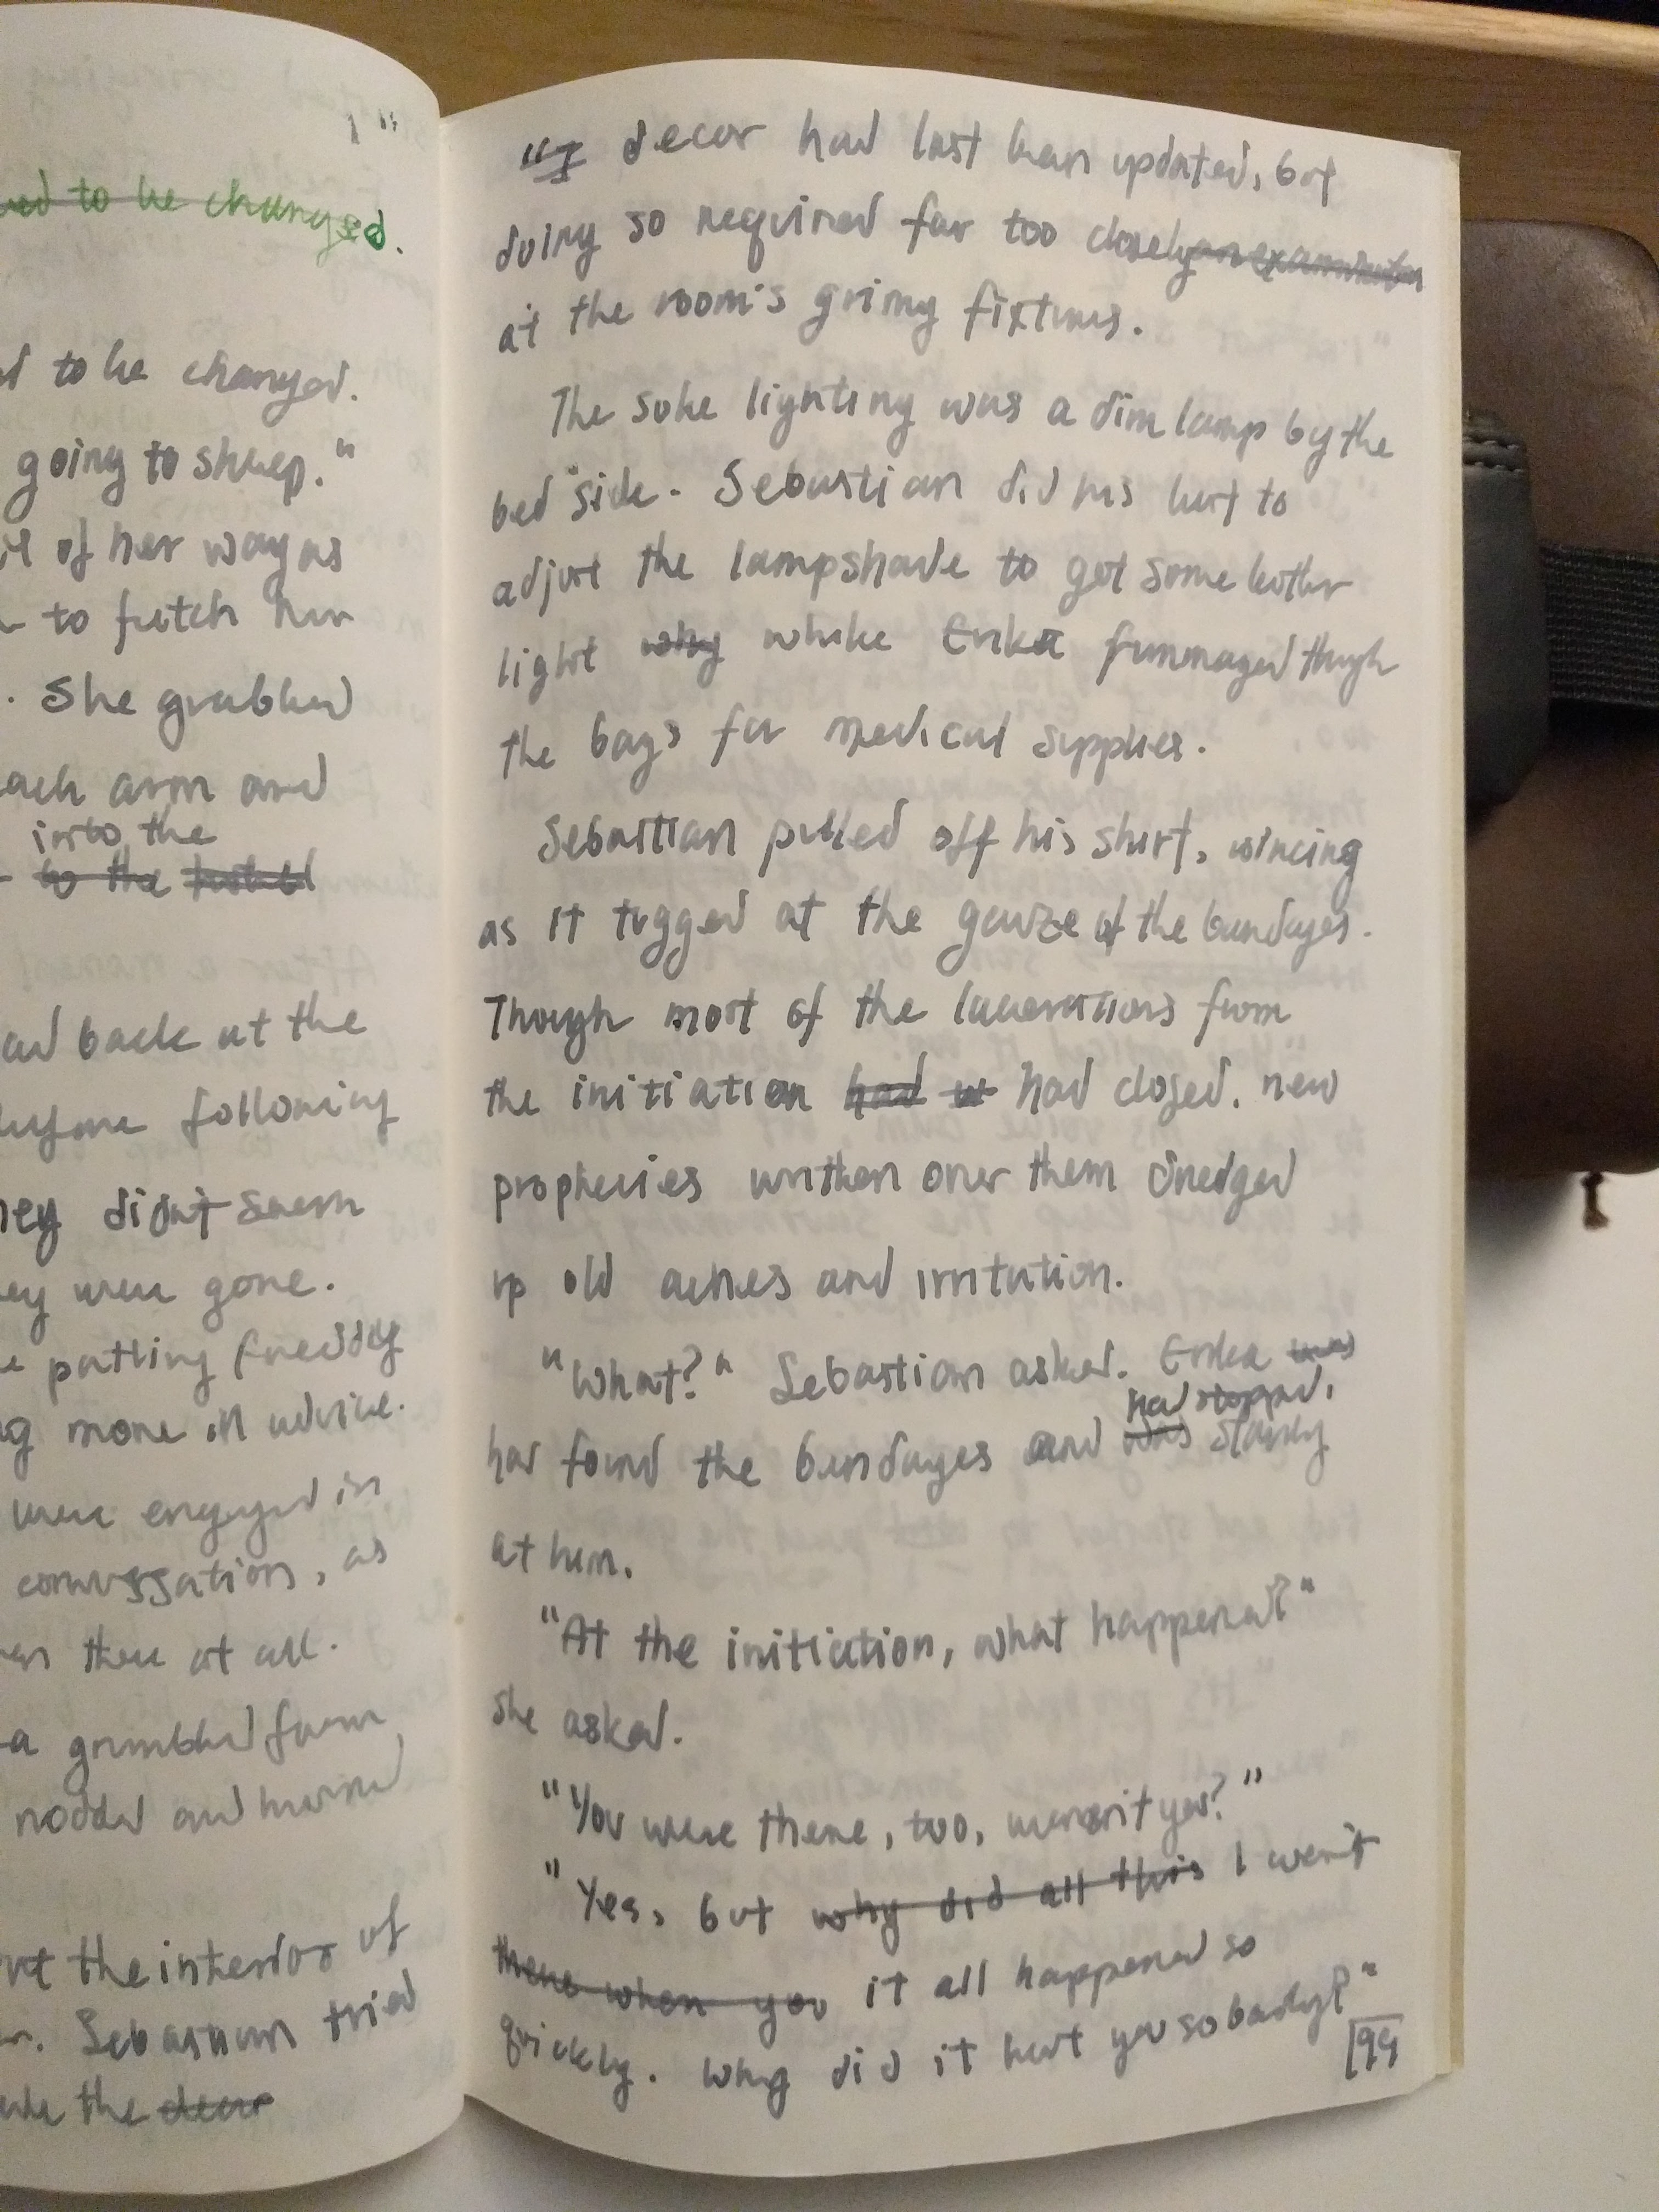 1"
ed to be changed.
to be changed.
going to sleep."
of her way as
to fetch her
. She grabbed
each arm and
into the
to the hotel
back at the
before following
they didn't seem
they were gone.
patting Freddy
more in advice.
were engaged in
conversation, as
then there at all.
a grumbled form
nodded and
the interior of
. Sebastian tried
the decor
"I decor had last been updated, but
doing so required far too closely an examination
at the room's grimy fixtures.
The sole lighting was a dim lamp by the
bed side. Sebastian did his best to
adjust the lampshade to get some better
light why while Erika rummaged though
the bags for medical supplies.
Sebastian pulled off his shirt, wincing
as it tugged at the gauze of the bandages.
Though most of the lacerations from
the initiation had w had closed, new
prophecies written over them dredged
up old aches and irritation.
"What?" Sebastian asked. Erika was
had stopped,
had found the bandages and was staring
at him.
"At the initiation, what happened?"
she asked.
"You were there, too, weren't you?"
"Yes, but why did all this I wasn't
there when you it all happened so
quickly. Why did it hurt you so badly?"
199